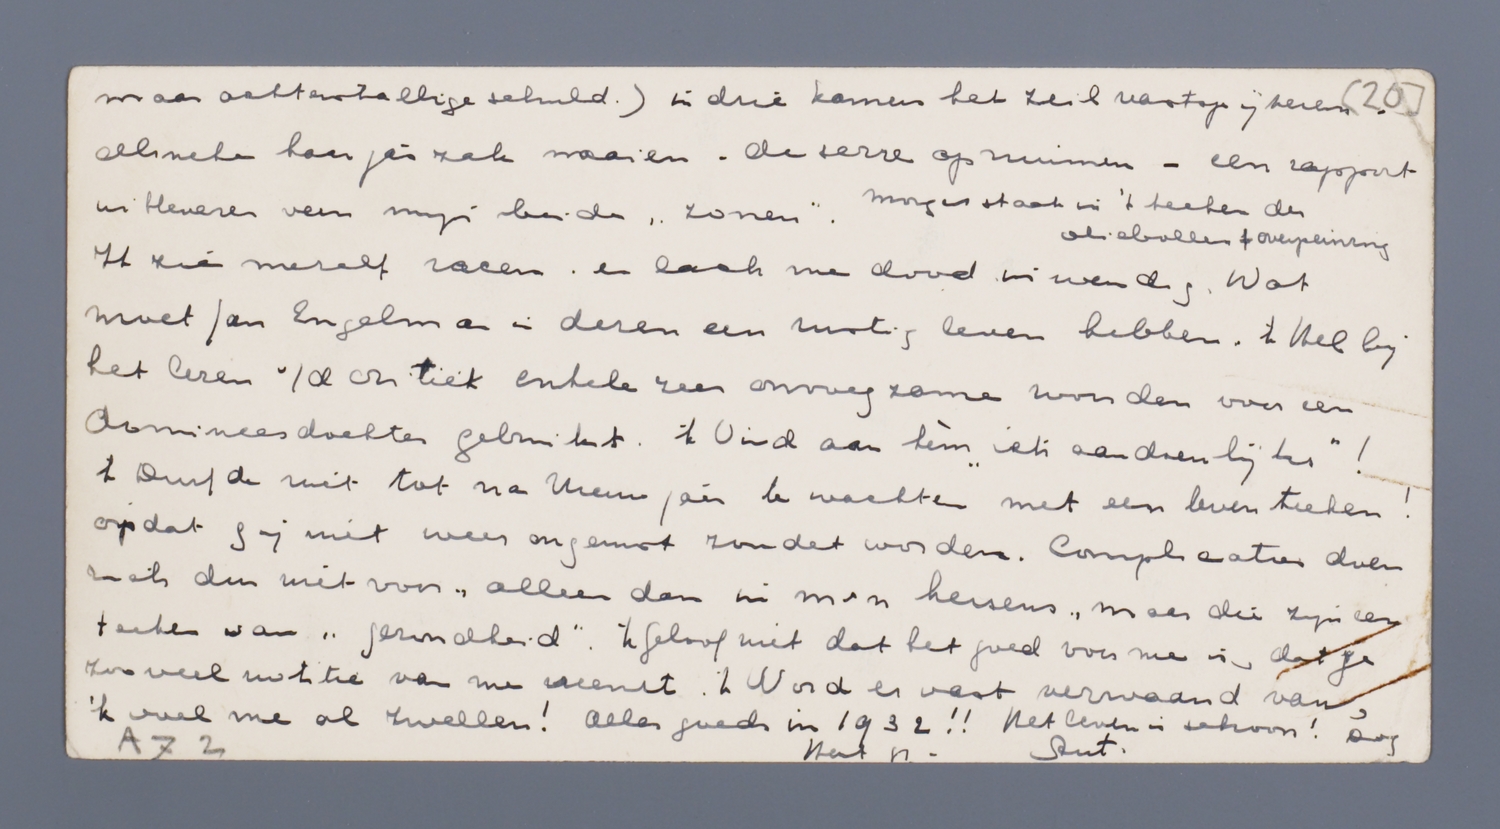 maar achterstallige schuld.) in drie kamers het zeil vastspijkeren. (20)
haar jas zak naaien - de serre opruimen - een rapport
uitleveren van mijn beide „zonen”. morgen staat in 't teeken der
oliebollen & overpeinzing
Ik zie mezelf racen. en lach me dood inwendig. Wat
moet Jan Engelman in dezen een rustig leven hebben. 'k Heb bij
het lezen v/d critiek enkele zeer onvoegzame woorden voor een
domineesdochter gebruikt. 'k Vind aan hèm „iets aandoenlijks”!
'k Durfde niet tot na Nieuwjaar te wachten met een levensteeken!
opdat gij niet weer ongerust zoudet worden. Complicaties doen
zich dus niet voor „alleen dan in mijn hersens„ maar die zijn een
teeken van „gezondheid”. 'k Geloof niet dat het goed voor me is, dat ge
zooveel notitie van me neemt. 'k Word er vast verwaand van,
'k voel me al zwellen! Alles goeds in 1932!! Het leven is schoon! Dag
A72 Hart gr. - Ant.